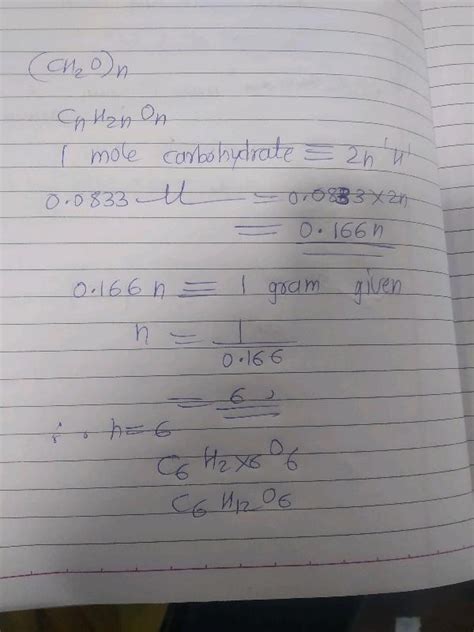 (CH₂O)n
CnH₂nOn
1 mole carbohydrate ≡ 2n 'H'
0.0833 —〃— = 0.0833×2n
= 0.166n
0.166 n ≡ 1 gram given
n = 1/0.166
= 6,
∴ n=6
C₆ H₂×₆ O₆
C₆ H₁₂ O₆